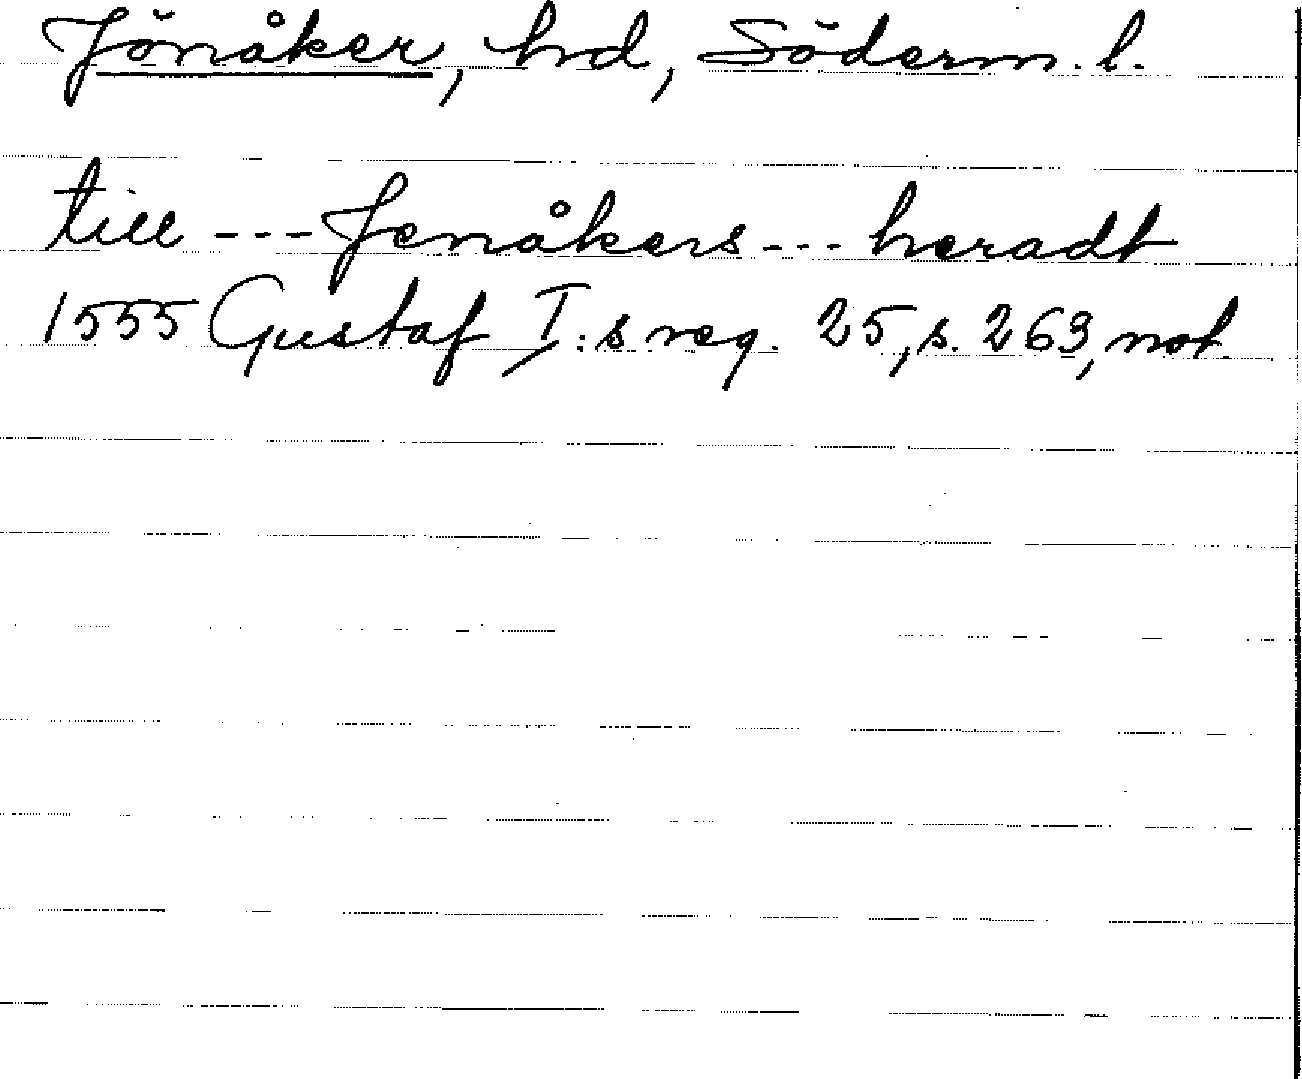 Jönåker, hd, Söderm. l.
till --- Jenåkers --- heradt
1555 Gustaf I:s reg. 25, s. 263, not.